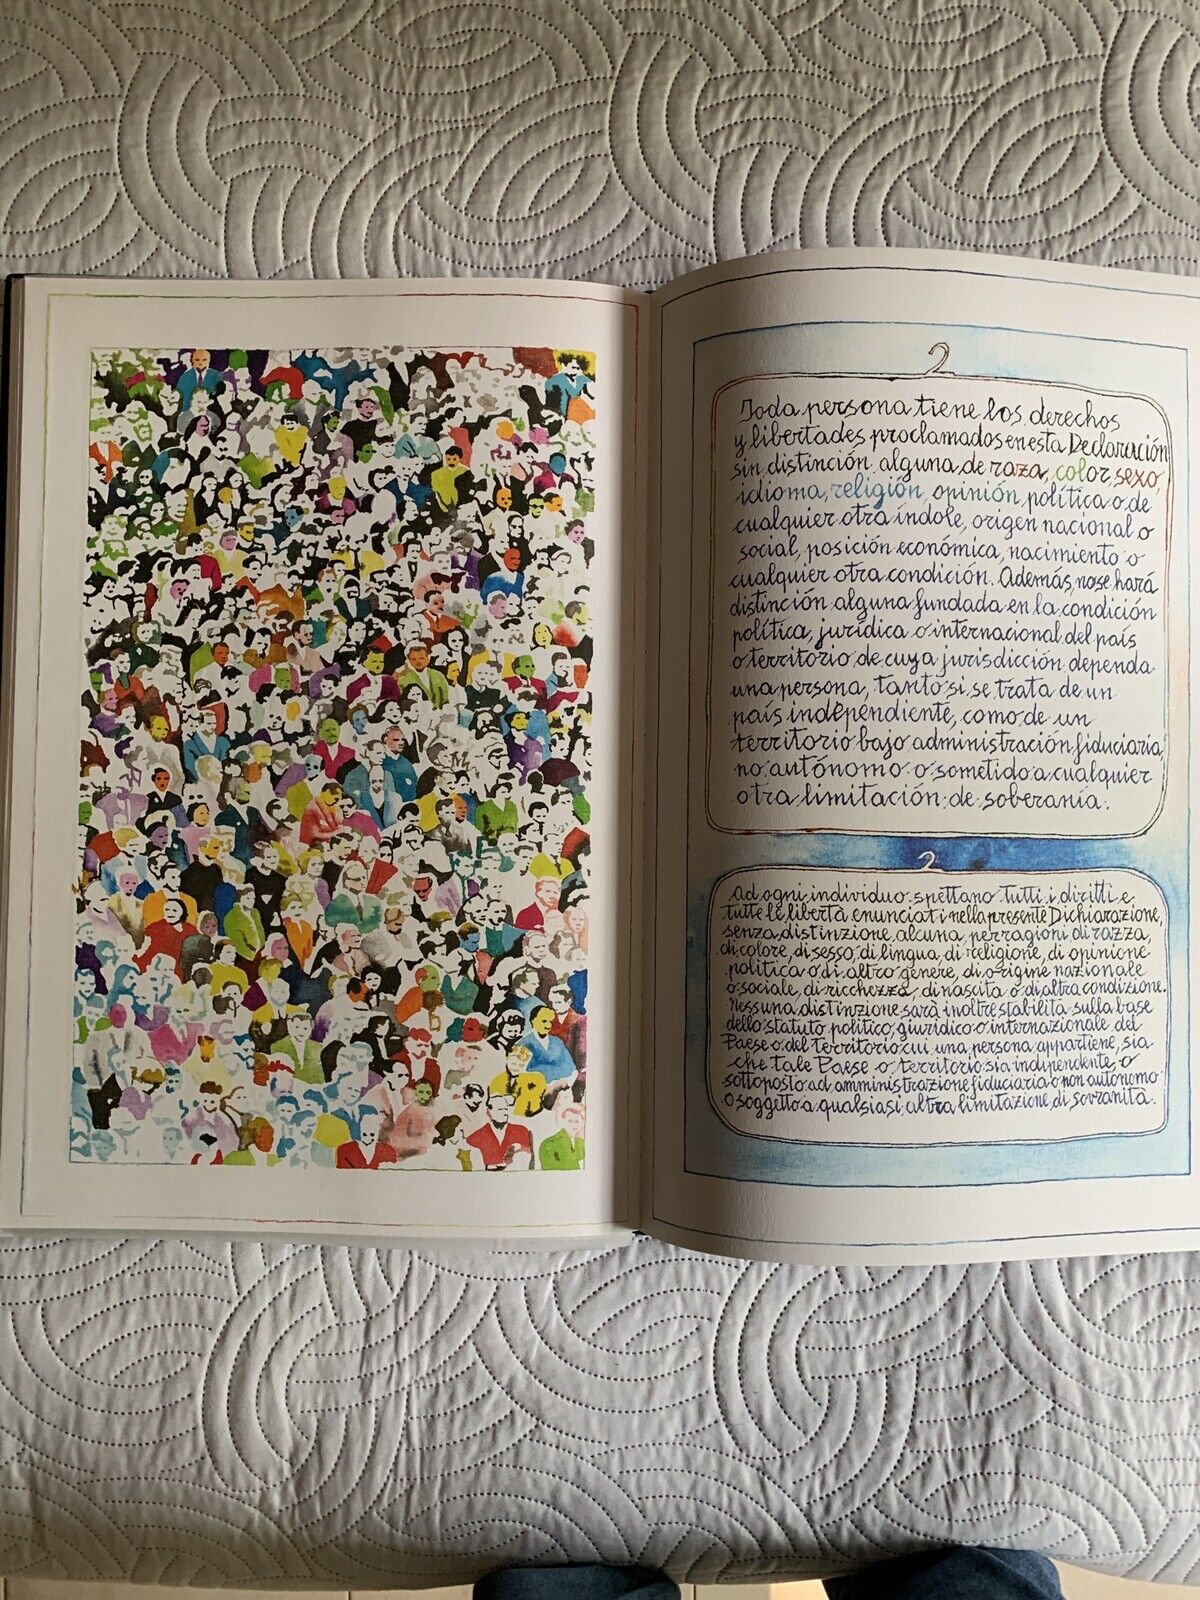 2
Toda persona tiene los derechos
y libertades proclamados en esta Declaración
sin distinción alguna de raza, color, sexo,
idioma, religión, opinión política o de
cualquier otra índole, origen nacional o
social, posición económica, nacimiento o
cualquier otra condición. Además, no se hará
distinción alguna fundada en la condición
política, jurídica o internacional del país
o territorio de cuya jurisdicción dependa
una persona, tanto si se trata de un
país independiente, como de un
territorio bajo administración fiduciaria,
no autónomo o sometido a cualquier
otra limitación de soberanía.
2
Ad ogni individuo spettano tutti i diritti e
tutte le libertà enunciati nella presente Dichiarazione,
senza distinzione alcuna, per ragioni di razza,
di colore, di sesso, di lingua, di religione, di opinione
politica o di altro genere, di origine nazionale
o sociale, di ricchezza, di nascita o di altra condizione.
Nessuna distinzione sarà inoltre stabilita sulla base
dello statuto politico, giuridico o internazionale del
Paese o del territorio cui una persona appartiene, sia
che tale Paese o territorio sia indipendente, o
sottoposto ad amministrazione fiduciaria o non autonomo
o soggetto a qualsiasi altra limitazione di sovranità.